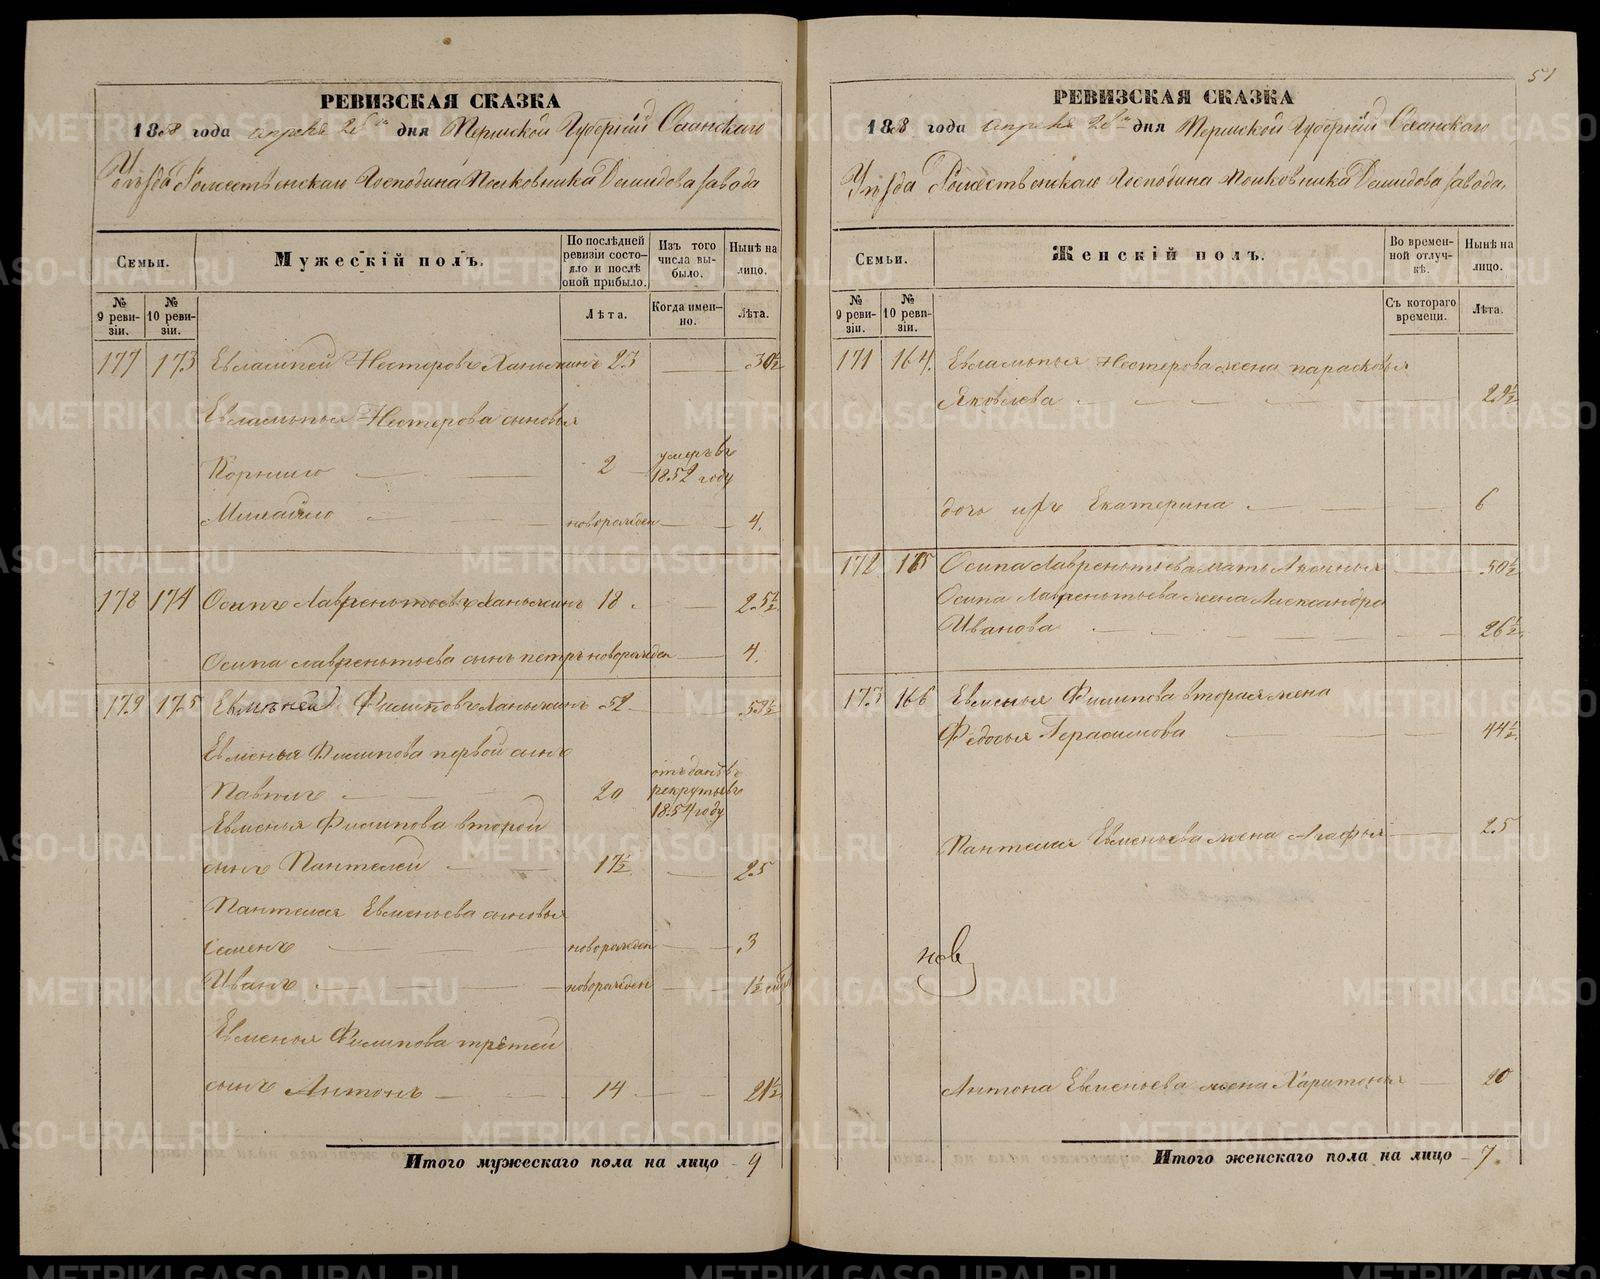 РЕВИЗСКАЯ СКАЗКА
1858 года апреля 26го дня Пермской Губерній Оханскаго
Уѣзда Рожественскаго Господина Полковника Демидова завода
Семьи.
Мужескій полъ.
По послѣдней ревизіи состояло и послѣ оной прибыло.
Изъ того числа выбыло.
Нынѣ на лицо.
№ 9 ревизіи.
№ 10 ревизіи.
Лѣта.
Когда именно.
Лѣта.
177 173 Евлампей Нестеровъ 23 30½
Евлампья Нестерова сыновья
Корнило 2 умеръ въ 1852 году
Михайло новорожден 4.
178 174 Осипъ Лаврентьевъ 18 25½
Осипа Лаврентьева сынъ петръ новорожден 4.
179 175 Евменей Филиповъ 52 59½
Евменья Филипова первой сынъ
Павилъ 20 отъданъ въ рекруты въ 1854 году
Евменья Филипова второй
сынъ Пантелей 17½ 25
Пантелея Евменьева сыновья
Семенъ новорожден 3
Иванъ новорожден 1½
Евменья Филипова третей
сынъ Антонъ 14 21½
Итого мужескаго пола на лицо 9
51
РЕВИЗСКАЯ СКАЗКА
1858 года апреля 26го дня Пермской Губерній Оханскаго
Уѣзда Рожественскаго Господина Полковника Демидова завода,
Семьи.
Женскій полъ.
Во временной отлучкѣ.
Нынѣ на лицо.
№ 9 ревизіи.
№ 10 ревизіи.
Съ котораго времени.
Лѣта.
171 164. Евлампья Нестерова жена парасковья
Яковлева 29½
дочь ихъ Екатерина 6
172 165 Осипа Лаврентьева мать 50½
Осипа Лаврентьева жена Александра
Иванова 26½
173 166 Евменья Филипова вторая жена
Федосья Герасимова 44½
Пантелея Евменьева жена Агафья 25
Антона Евменьева жена Харитонья 20
Итого женскаго пола на лицо 7.
METRIKI.GASO-URAL.RU